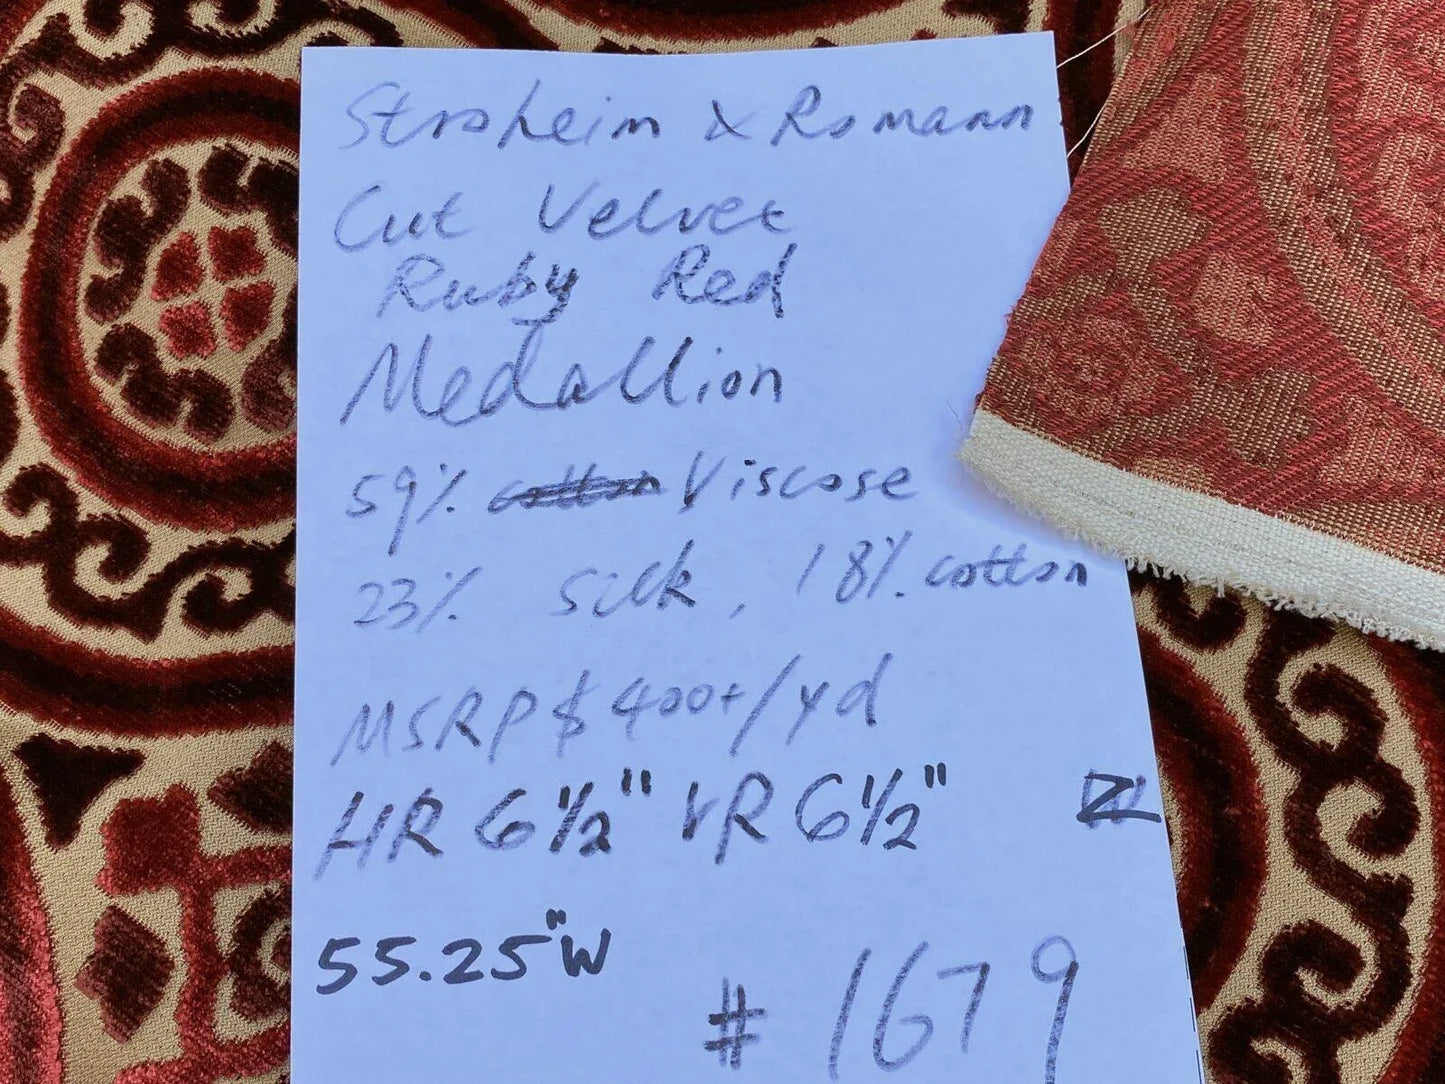 Stroheim & Romann
Cut Velvet
Ruby Red
Medallion
59% Viscose
23% silk, 18% cotton
MSRP $400+/yd
HR 6 1/2" VR 6 1/2"
55.25"W
#1679